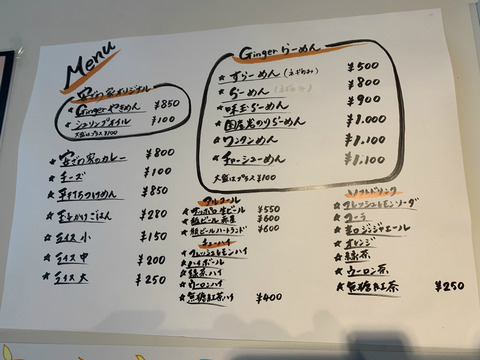 Menu
オリジナル
Ginger やきめん ¥850
シュリンプオイル ¥100
大盛はプラス¥100
家のカレー ¥800
チーズ ¥100
平打ちつけめん ¥850
玉子かけごはん ¥280
ライス 小 ¥150
ライス 中 ¥200
ライス 大 ¥250
Ginger らーめん
すらーめん ¥500
らーめん ¥800
味玉らーめん ¥900
国産岩のりらーめん ¥1.000
ワンタンめん ¥1,100
チャーシューめん ¥1,100
大盛はプラス¥100
アルコール
サッポロ生ビール ¥550
瓶ビール赤星 ¥600
瓶ビールハートランド ¥600
チューハイ
フレッシュレモンハイ
ハイボール
緑茶ハイ
ウーロンハイ
無糖紅茶ハイ ¥400
ソフトドリンク
フレッシュレモンソーダ
コーラ
辛口ジンジャエール
オレンジ
緑茶
ウーロン茶
無糖紅茶 ¥250